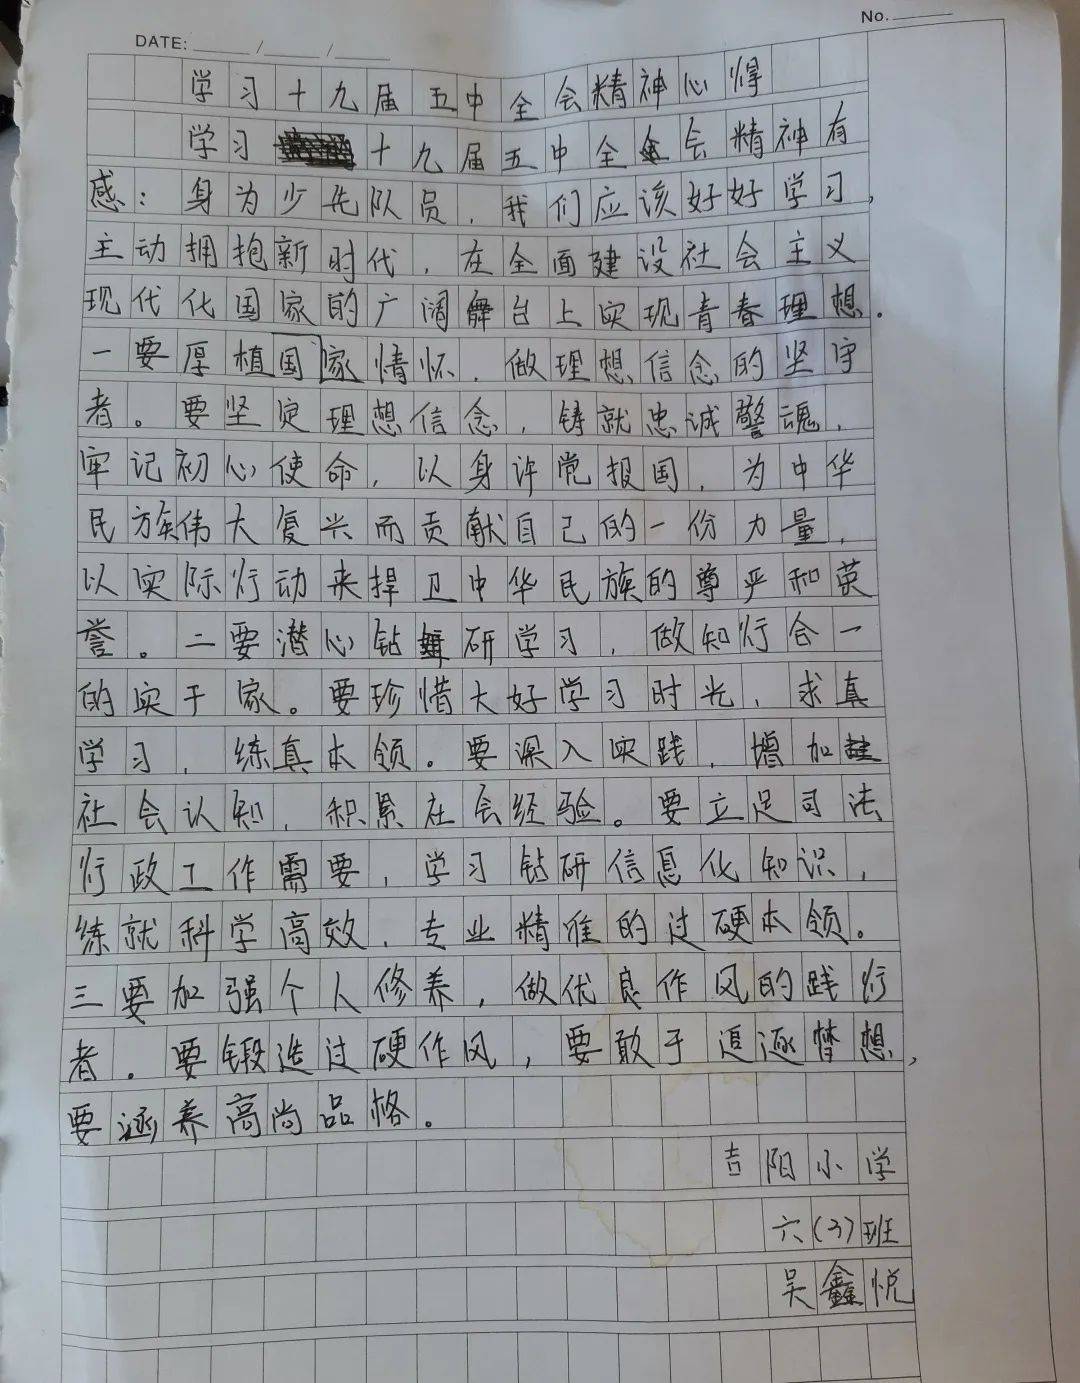 No.
DATE: / /
学习十九届五中全会精神心得
学习十九届五中全会精神有
感：身为少先队员，我们应该好好学习，
主动拥抱新时代，在全面建设社会主义
现代化国家的广阔舞台上实现青春理想.
一要厚植国家情怀，做理想信念的坚守
者。要坚定理想信念，铸就忠诚警魂，
牢记初心使命，以身许党报国，为中华
民族伟大复兴而贡献自己的一份力量，
以实际行动来捍卫中华民族的尊严和荣
誉。二要潜心钻研学习，做知行合一
的实干家。要珍惜大好学习时光，求真
学习，练真本领。要深入实践，增加
社会认知，积累在会经验。要立足司法
行政工作需要，学习钻研信息化知识，
练就科学高效，专业精准的过硬本领。
三要加强个人修养，做优良作风的践行
者。要锻造过硬作风，要敢于追逐梦想，
要涵养高尚品格。
吉阳小学
六(3)班
吴鑫悦